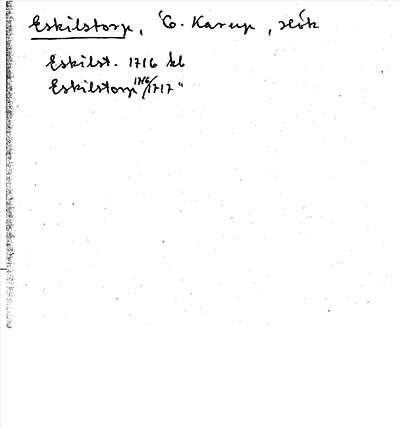 Eskilstorp, Ö. Karup, slök
Eskilst. 1716 kb
Eskilstorp 1716/1717 "